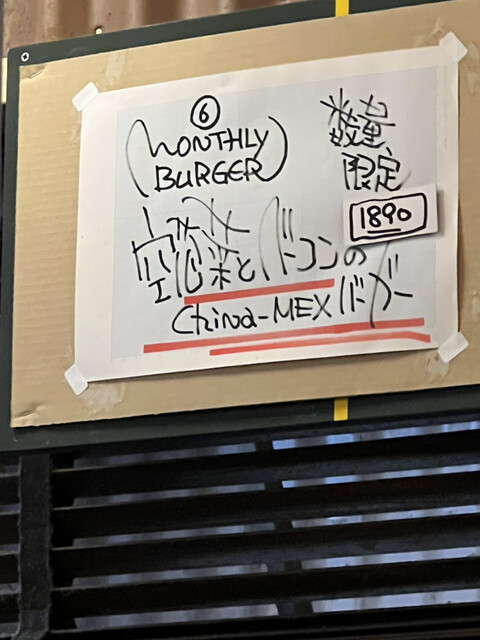 ⑥
(MONTHLY
BURGER)
数量
限定
1890
空芯菜とベーコンの
China-MEXバーガー